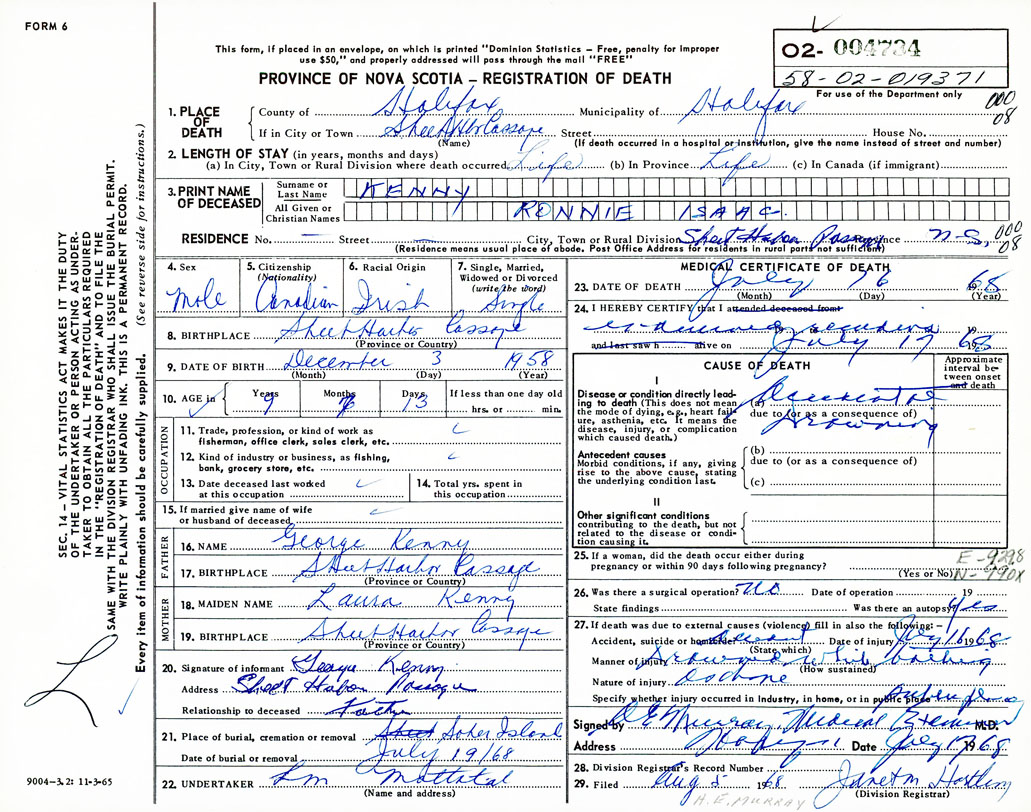 FORM 6
This form, if placed in an envelope, on which is printed "Dominion Statistics – Free, penalty for improper
use $50," and properly addressed will pass through the mail "FREE"
PROVINCE OF NOVA SCOTIA – REGISTRATION OF DEATH
02- 004734
58-02-019371
For use of the Department only
000
08
1. PLACE OF DEATH
County of Halifax Municipality of Halifax
If in City or Town Sheet Hbr Passage Street House No.
(Name) (If death occurred in a hospital or institution, give the name instead of street and number)
2. LENGTH OF STAY (in years, months and days)
(a) In City, Town or Rural Division where death occurred Life (b) In Province Life (c) In Canada (if immigrant)
3. PRINT NAME OF DECEASED
Surname or Last Name KENNY
All Given or Christian Names RONNIE ISAAC.
RESIDENCE No. Street City, Town or Rural Division Sheet Habor Passage Province N-S,
000
08
(Residence means usual place of abode. Post Office Address for residents in rural parts not sufficient)
4. Sex Male
5. Citizenship (Nationality) Canadian
6. Racial Origin Irish
7. Single, Married, Widowed or Divorced (write the word) Single
8. BIRTHPLACE Sheet Harbor Passage
(Province or Country)
9. DATE OF BIRTH December 3 1958
(Month) (Day) (Year)
10. AGE in Years 9 Months Days 13 If less than one day old
hrs. or min.
OCCUPATION
11. Trade, profession or kind of work as fisherman, office clerk, sales clerk, etc.
12. Kind of industry or business, as fishing, bank, grocery store, etc.
13. Date deceased last worked at this occupation
14. Total yrs. spent in this occupation
15. If married give name of wife or husband of deceased
FATHER
16. NAME George Kenny
17. BIRTHPLACE Sheet Harbor Passage
(Province or Country)
MOTHER
18. MAIDEN NAME Laura Kenny
19. BIRTHPLACE Sheet Harbor Passage
(Province or Country)
20. Signature of informant George Kenny
Address Sheet Habor Passage
Relationship to deceased Father
21. Place of burial, cremation or removal Sheet Sober Island
Date of burial or removal July 19/68
22. UNDERTAKER
(Name and address)
MEDICAL CERTIFICATE OF DEATH
23. DATE OF DEATH July 16 1968
(Month) (Day) (Year)
24. I HEREBY CERTIFY that I attended deceased from
19
and last saw h alive on July 17 1968
CAUSE OF DEATH
Approximate interval between onset and death
I
Disease or condition directly leading to death (This does not mean the mode of dying, e.g., heart failure, asthenia, etc. It means the disease, injury, or complication which caused death.)
(a)
due to (or as a consequence of)
Drowning
Antecedent causes
Morbid conditions, if any, giving rise to the above cause, stating the underlying condition last.
(b)
due to (or as a consequence of)
(c)
II
Other significant conditions contributing to the death, but not related to the disease or condition causing it.
25. If a woman, did the death occur either during pregnancy or within 90 days following pregnancy?
(Yes or No)
E-9298
N-990X
26. Was there a surgical operation? No Date of operation 19
State findings Was there an autopsy? Yes
27. If death was due to external causes (violence) fill in also the following: –
Accident, suicide or homicide Accident Date of injury July 16 1968
(State which)
Manner of injury Drowned while bathing
(How sustained)
Nature of injury
Specify whether injury occurred in industry, in home, or in public place
Signed by Murray Medical Examiner M.D.
Address Date July 17 1968
28. Division Registrar's Record Number
29. Filed Aug 5 1968
(Division Registrar)
H.E. MURRAY
SEC. 14 – VITAL STATISTICS ACT MAKES IT THE DUTY
OF THE UNDERTAKER OR PERSON ACTING AS UNDERTAKER TO OBTAIN ALL THE PARTICULARS REQUIRED
IN THE "REGISTRATION OF DEATH" AND TO FILE THE
SAME WITH THE DIVISION REGISTRAR WHO SHALL ISSUE THE BURIAL PERMIT.
WRITE PLAINLY WITH UNFADING INK. THIS IS A PERMANENT RECORD.
Every item of information should be carefully supplied. (See reverse side for instructions.)
9004–3.2: 11-3-65